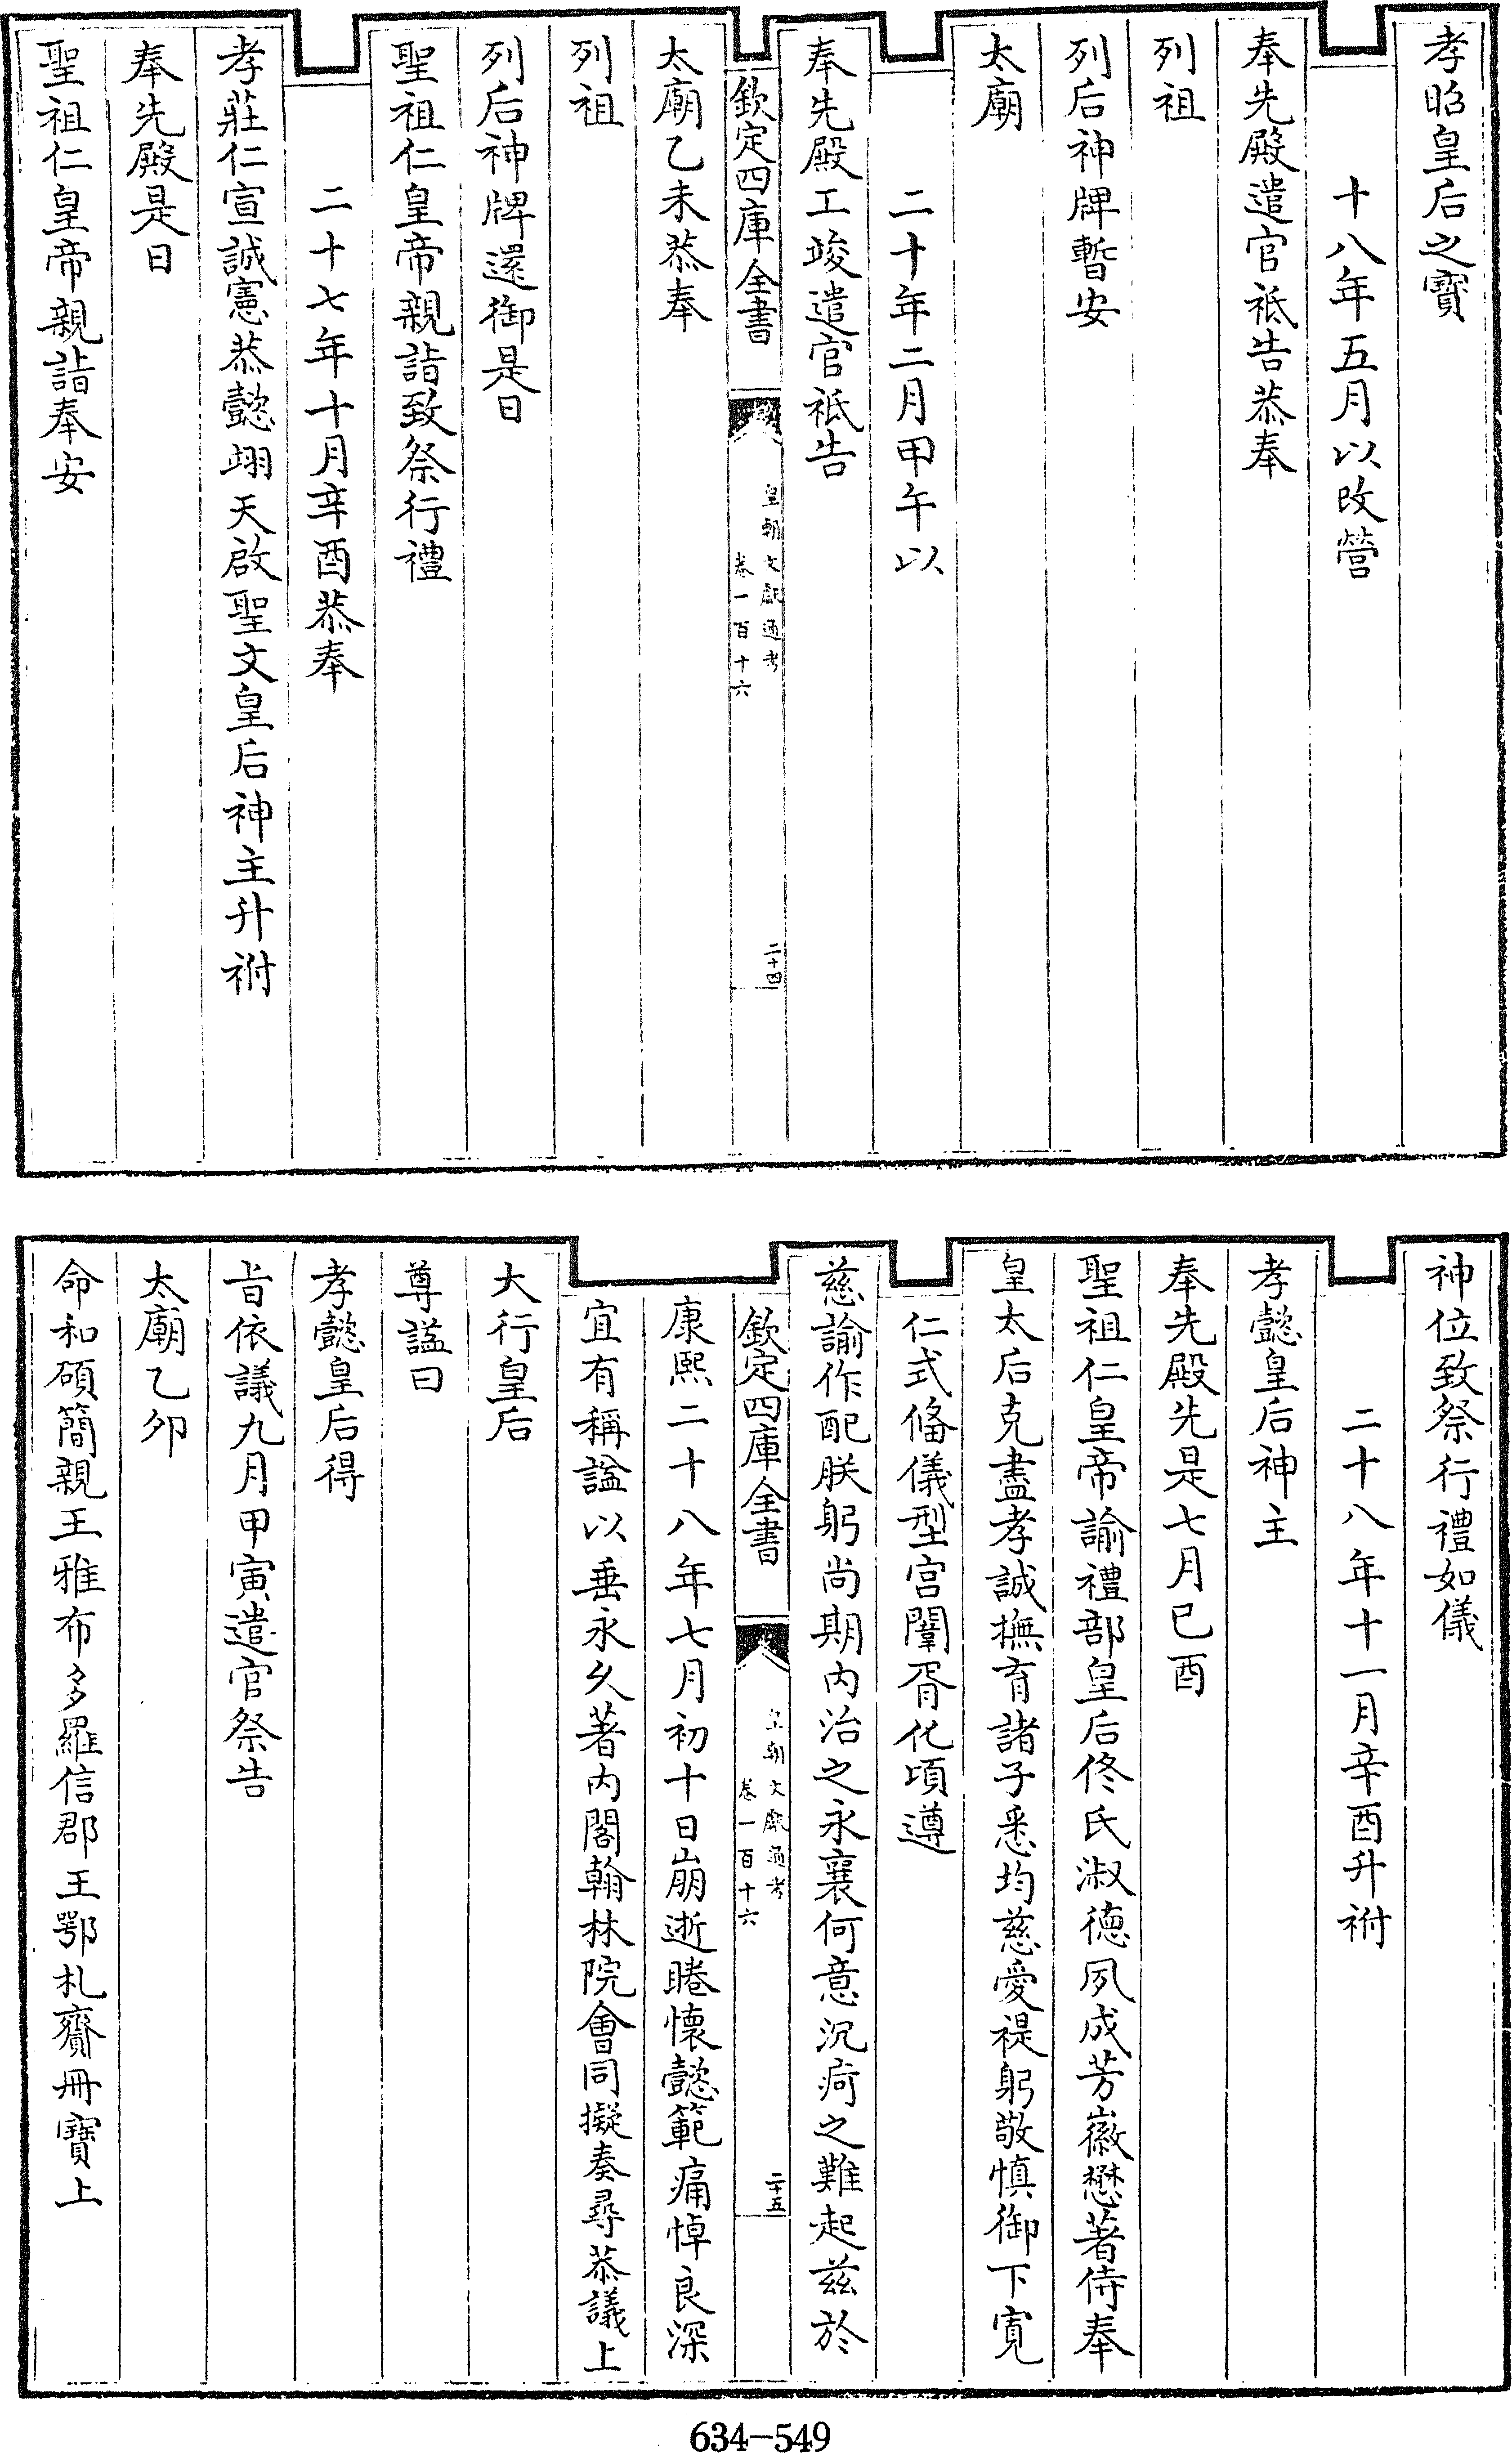 孝昭皇后之寶
十八年五月以改營
奉先殿遣官祗告恭奉
列祖
列后神牌暫安
太廟
二十年二月甲午以
奉先殿工竣遣官祗告
欽定四庫全書
皇朝文獻通考
卷一百十六
二十四
太廟乙未恭奉
列祖
列后神牌還御是日
聖祖仁皇帝親詣致祭行禮
二十七年十月辛酉恭奉
孝莊仁宣誠憲恭懿翊天啟聖文皇后神主升祔
奉先殿是日
聖祖仁皇帝親詣奉安
神位致祭行禮如儀
二十八年十一月辛酉升祔
孝懿皇后神主
奉先殿先是七月已酉
聖祖仁皇帝諭禮部皇后佟氏淑德夙成芳徽懋著侍奉
皇太后克盡孝誠撫育諸子悉均慈愛禔躬敬慎御下寬
仁式俻儀型宫闈胥化頃遵
慈諭作配朕躬尚期内治之永襄何意沉疴之難起兹於
欽定四庫全書
皇朝文獻通考
卷一百十六
二十五
康熙二十八年七月初十日崩逝睠懷懿範痛悼良深
宜有稱諡以垂永久著内閣翰林院會同擬奏尋恭議上
大行皇后
尊諡曰
孝懿皇后得
㫖依議九月甲寅遣官祭告
太廟乙夘
命和碩簡親王雅布多羅信郡王鄂札齎冊寶上
634-549